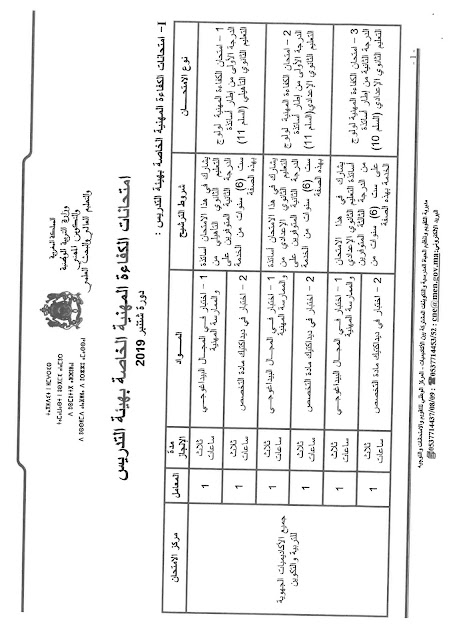 المملكة المغربية
وزارة التربية الوطنية
والتكوين المهني
والتعليم العالي والبحث العلمي
امتحانات الكفاءة المهنية الخاصة بهيئة التدريس
دورة شتنبر 2019
I- امتحانات الكفاءة المهنية الخاصة بهيئة التدريس :
نوع الامتحان
شروط الترشيح
المواد
مدة
الإنجاز
المعامل
مركز الامتحان
1 – امتحان الكفاءة المهنية لولوج
الدرجة الأولى من إطار أساتذة
التعليم الثانوي التأهيلي (السلم 11)
يشارك في هذا الامتحان أساتذة
التعليم الثانوي التأهيلي من
الدرجة الثانية المتوفرين على
ست (6) سنوات من الخدمة
بهذه الصفة
1 – اختبار في المجال البيداغوجي
والممارسة المهنية
ثلاث
ساعات
1
2 – اختبار في ديداكتيك مادة التخصص
ثلاث
ساعات
1
2 – امتحان الكفاءة المهنية لولوج
الدرجة الأولى من إطار أساتذة
التعليم الثانوي الإعدادي (السلم 11)
يشارك في هذا الامتحان أساتذة
التعليم الثانوي الإعدادي من
الدرجة الثانية المتوفرين على
ست (6) سنوات من الخدمة
بهذه الصفة
1 – اختبار في المجال البيداغوجي
والممارسة المهنية
ثلاث
ساعات
1
2 – اختبار في ديداكتيك مادة التخصص
ثلاث
ساعات
1
3 – امتحان الكفاءة المهنية لولوج
الدرجة الثانية من إطار أساتذة
التعليم الثانوي الإعدادي (السلم 10)
يشارك في هذا الامتحان
أساتذة التعليم الثانوي الإعدادي
من الدرجة الثالثة المتوفرين
على ست (6) سنوات من
الخدمة بهذه الصفة
1 – اختبار في المجال البيداغوجي
والممارسة المهنية
ثلاث
ساعات
1
2 – اختبار في ديداكتيك مادة التخصص
ثلاث
ساعات
1
جميع الأكاديميات الجهوية
للتربية والتكوين